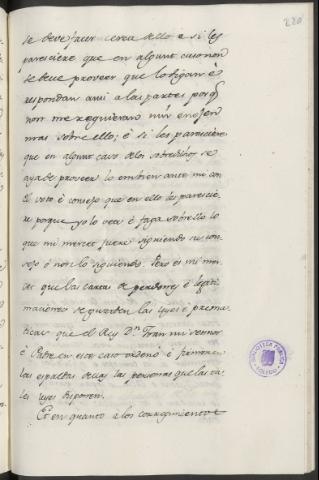 220
se deve facer cerca dello e si les
paresciere que en algunt caso non
se deve proveer que lo digan è
respondan ansi a las partes porq̃
non me requieran nin enojen
mas sobre ello; è si les paresciere
que en algunt caso de los sobredichos se
aya de proveer lo embien ante mi con
el voto è consejo que en ello les parescie-
re porque yo lo vea è faga sobrello lo
que mi merced fuere siguiendo su con-
sejo ò non lo siguiendo. Pero es mi mer-
ced que las cartas de perdones è legiti-
maciones se guarden las leyes è prema-
ticas que el Rey Dn. Juan mi señor
è Padre en este caso ordenó è firmaron
las espaldas dellas las personas que las ta-
les leyes disponen.
Et en quanto a los corregimientos
BIBLIOTECA PUBLICA
TOLEDO